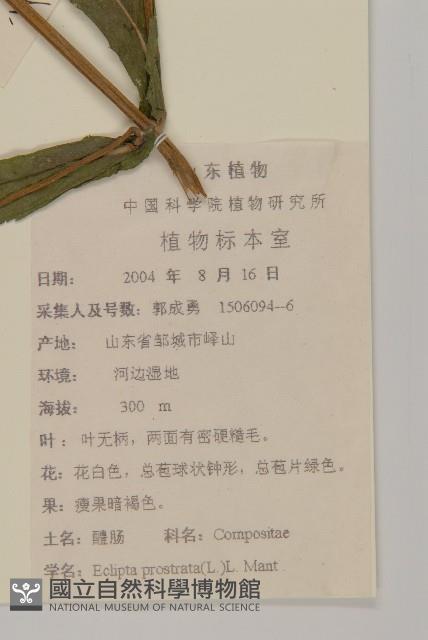 东植物
中国科学院植物研究所
植物标本室
日期： 2004 年 8 月 16 日
采集人及号数：郭成勇 1506094--6
产地： 山东省邹城市峄山
环境： 河边湿地
海拔： 300 m
叶：叶无柄，两面有密硬糙毛。
花：花白色，总苞球状钟形，总苞片绿色。
果：瘦果暗褐色。
土名：醴肠 科名：Compositae
学名：Eclipta prostrata(L.)L. Mant
國立自然科學博物館
NATIONAL MUSEUM OF NATURAL SCIENCE